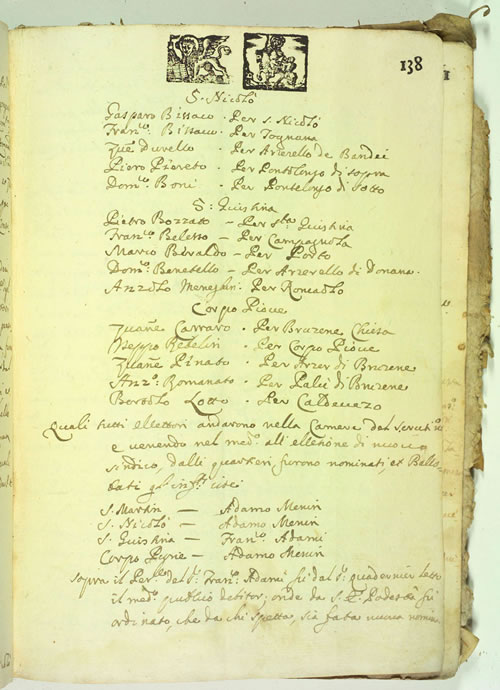 138
S. Nicolò
Gasparo Bissaco - Per S. Nicolò
Fran.co Bissaco - Per Tognana
Zuè Duvello - Per Arzerello de Bandei
Piero Pioreto - Per Pontelongo di sopra
Dom.co Boni - Per Pontelongo di sotto
S. Giustina
Pietro Bozzato - Per S.ta Giustina
Fran.co Beletto - Per Campagnola
Marco Biraldo - Per Porto
Dom.co Benetello - Per Arzerello di Donana
Anzolo Meneghin - Per Roncaolo
Corpo Piove
Zuane Carraro - Per Bruzene Chiesa
Beppo Bedelin - Per Corpo Piove
Zuane Pinato - Per Arzer di Bruzene
Anz.o Romanato - Per Palù di Bruzene
Bortolo Lotto - Per Caldevazo
Quali tutti elettori andarono nella Camera del Scrutinio
e venendo nel med.o all'elletione di nuovo
sindico, dalli quartieri furono nominati, et Ballo
tati gl'inf.ti cioè
S. Martin - Adamo Menin
S. Nicolò - Adamo Menin
S. Giustina - Fran.co Adami
Corpo Piove - Adamo Menin
sopra il del S.r Fran.co Adami fù dal S.r quadernier letto
il med.o debitor; onde da S. E. Podestà fù
ordinato, che da chi spetta, sia fata nuova nomina